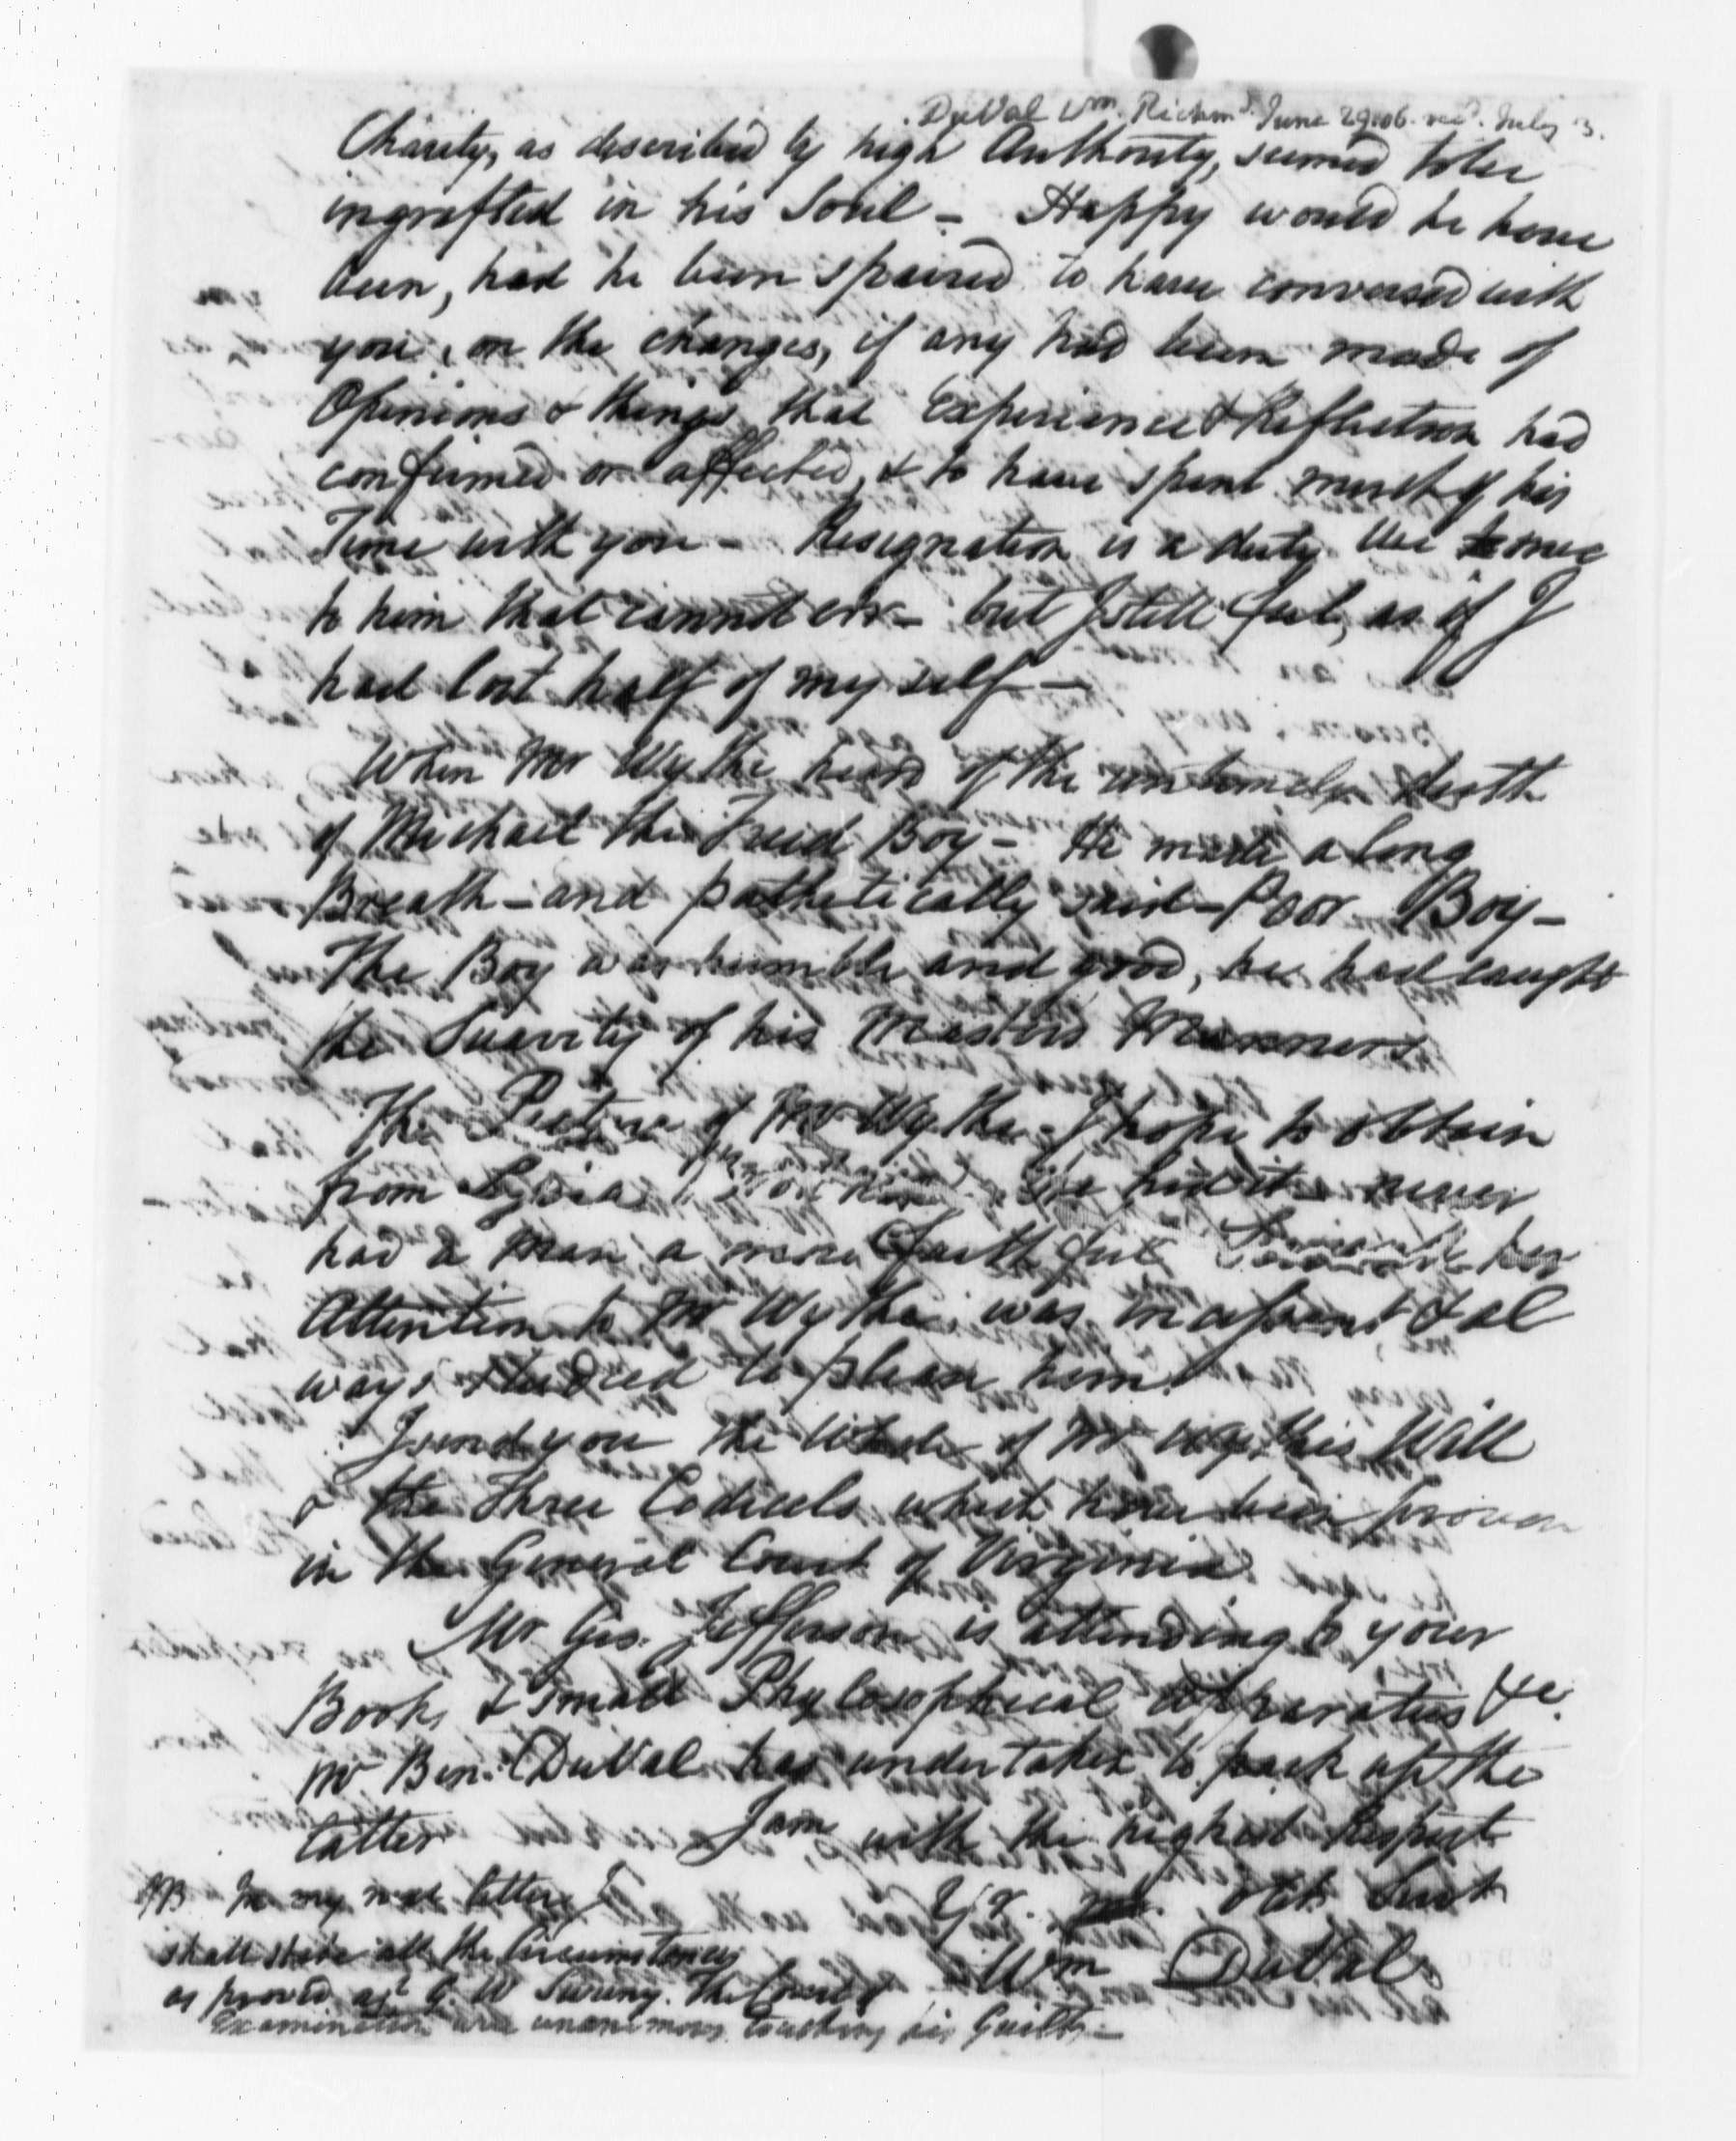 DuVal Wm. Richmd. June 29. 06. recd. July 3.
Charity, as described by high Authority, seemed to be
ingrafted in his Soul – Happy would he have
been, had he been spaired to have conversed with
you, on the changes, if any had been made of
Opinions & things that Experience & Reflection had
confirmed or affected, & to have spent much of his
Time with you – Resignation is a duty we owe
to him that cannot err – but I still feel, as if I
had lost half of my self –
When Mr Wythe heard of the untimely death
of Michael the Freed Boy – He made a long
Breath – and pathetically said – Poor Boy –
The Boy was humble and good, he had caught
the Suavity of his Masters Manners.
The Picture of Mr Wythe I hope to obtain
from Lydia She has it never
had a Man a more faithful Servant her
Attention to Mr Wythe was incessant & al
ways studied to please him.
I send you the whole of Mr Wythes Will
& the Three Codicels which have been proven
in the General Court of Virginia.
Mr Geo. Jefferson is attending to your
Books & small Phylosophical Apparatus &c.
Mr Ben: DuVal has undertaken to pack up the
latter I am with the highest Respect
Yr. Obt. Servt
Wm DuVal
NB In my next letter I
shall state all the Circumstances
as proved agt G. W Sweny. The Court of
Examination were unanimous touching his Guilt –